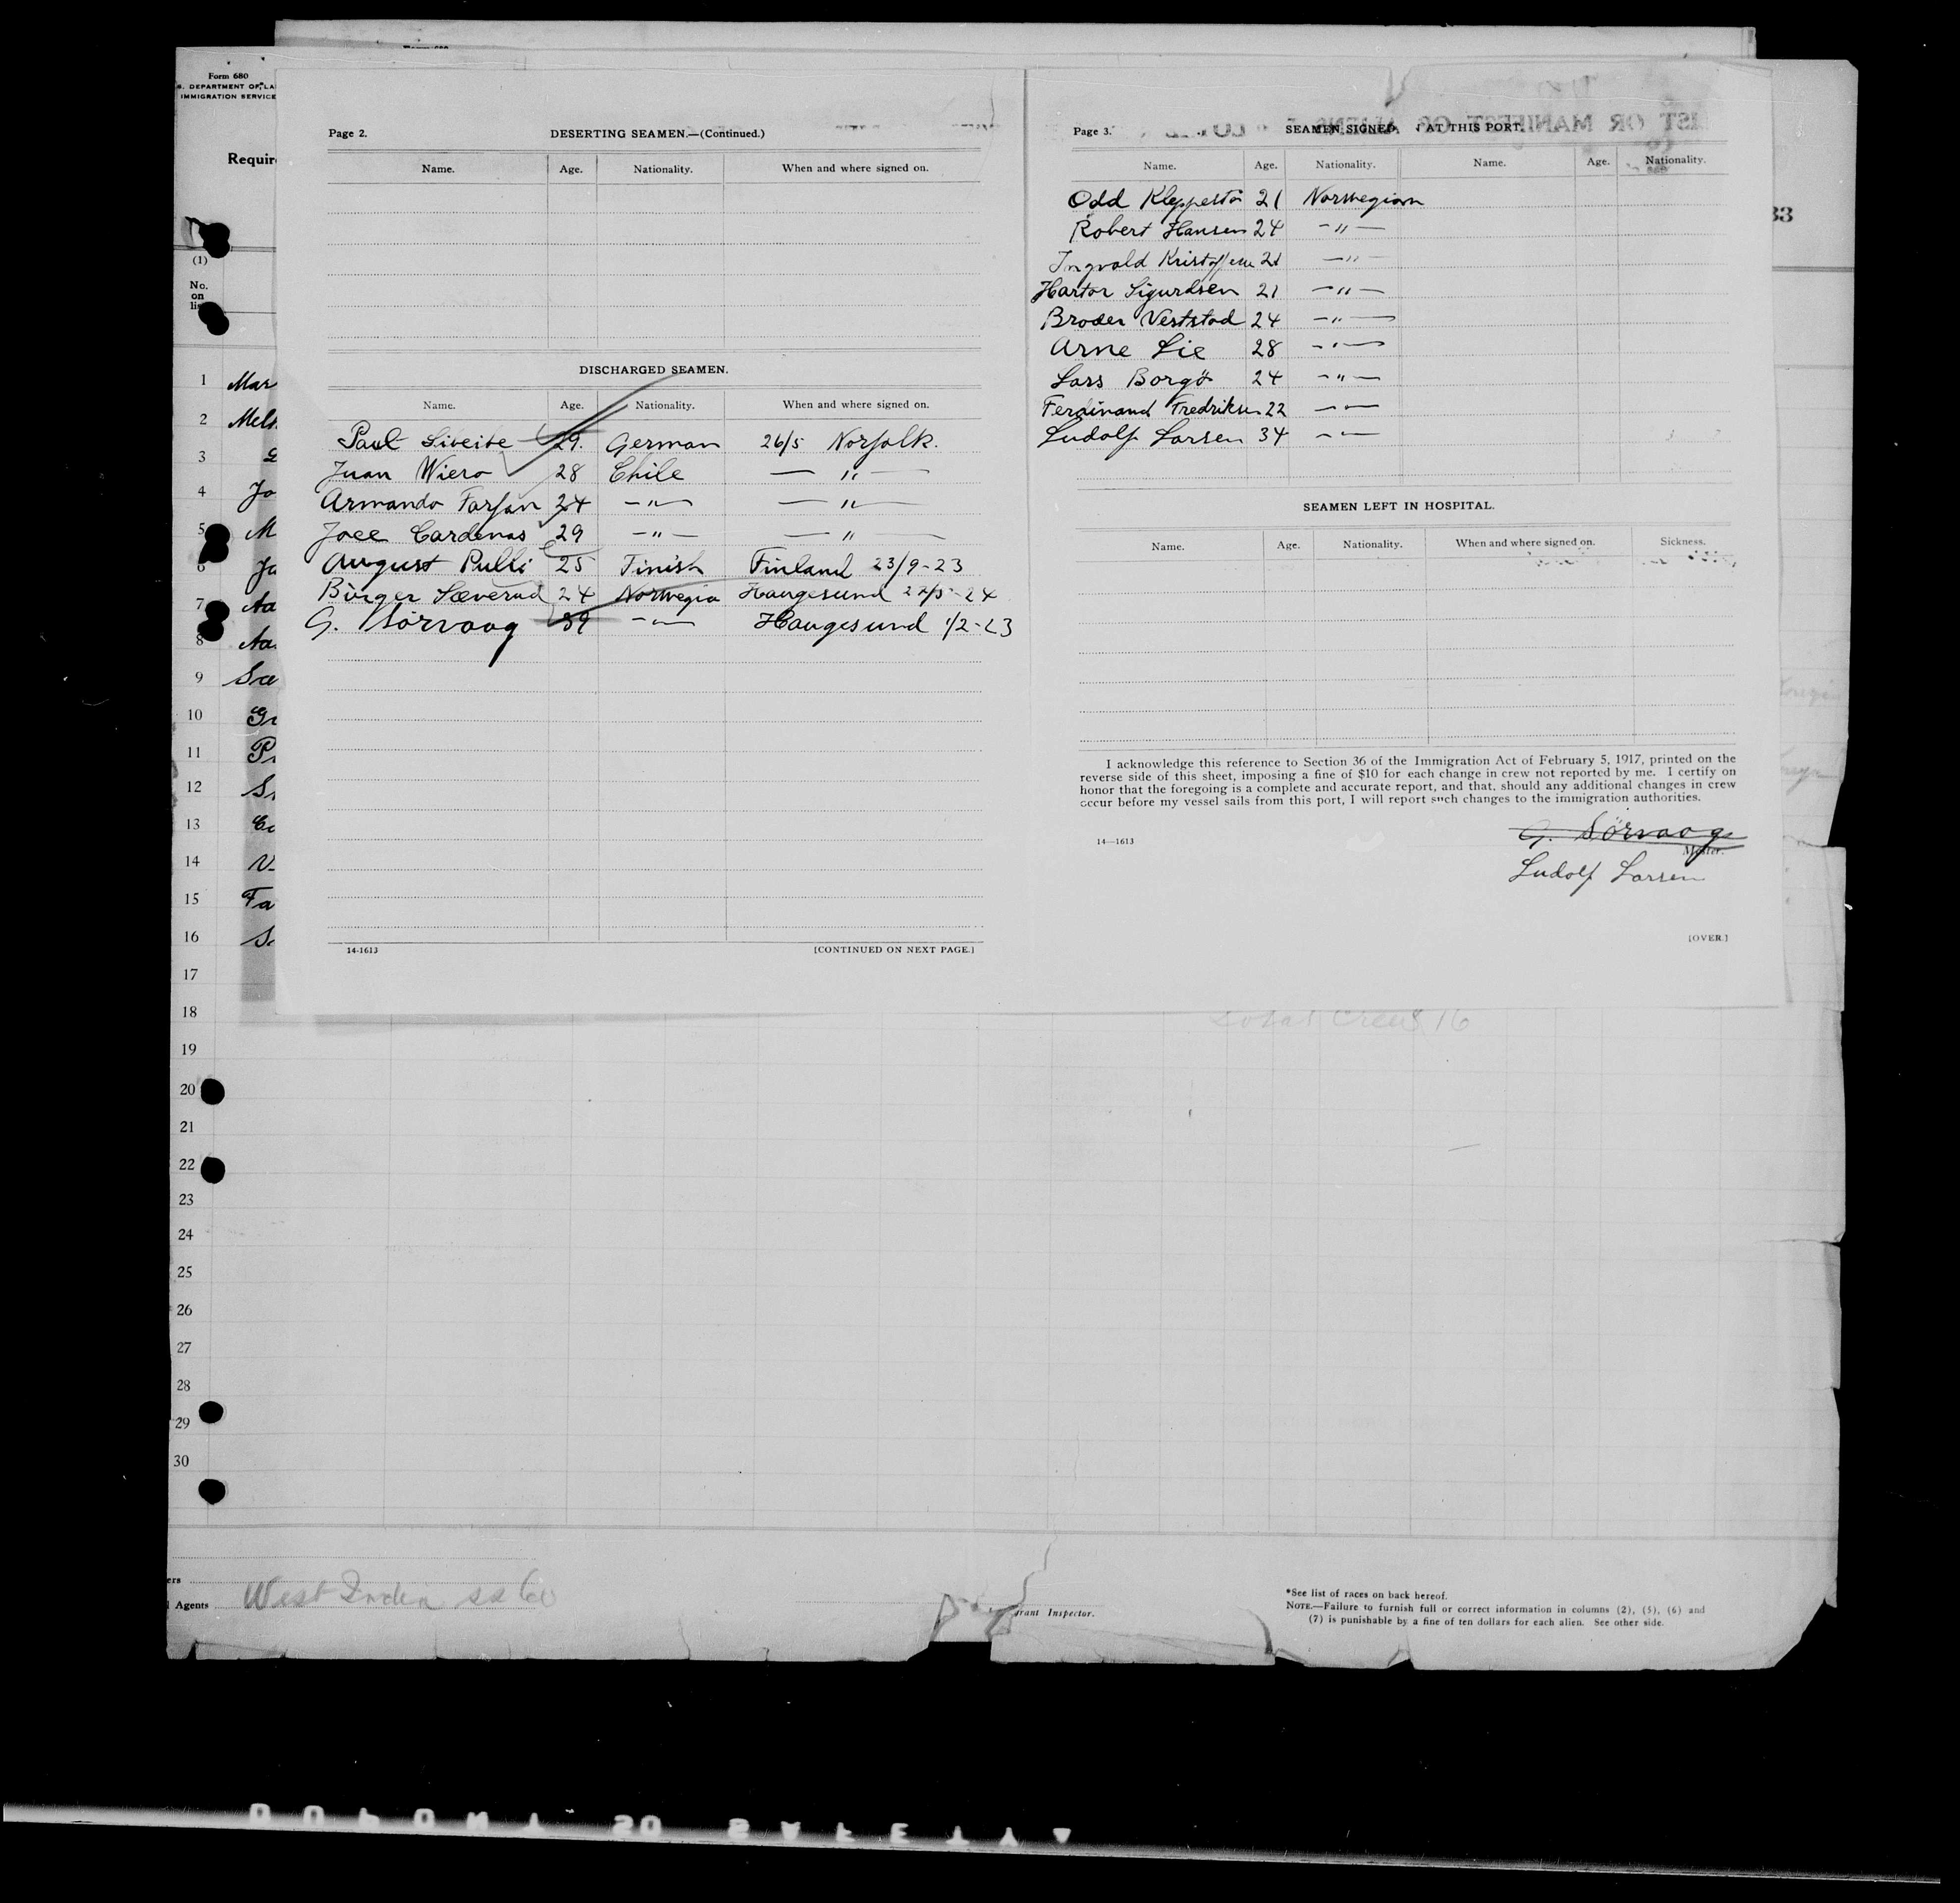 Form 680
S. DEPARTMENT OF LA
IMMIGRATION SERVICE
Require
(1)
No.
on
lis
1 Mar
2 Mels
3
4 Jo
5 M
6 Ja
7 Aa
8 Aa
9 Sæ
10 Gr
11 Pr
12 S
13 Ca
14 V
15 Fa
16 S
17
18
19
20
21
22
23
24
25
26
27
28
29
30
Page 2. DESERTING SEAMEN.—(Continued.)
Name. Age. Nationality. When and where signed on.
DISCHARGED SEAMEN.
Name. Age. Nationality. When and where signed on.
Paul 29. German 26/5 Norfolk.
Juan Wiero 28 Chile — " —
Armando Farfan 24 — " — — " —
Joce Cardenas 29 — " — — " —
August Pulli 25 Finish Finland 23/9-23
Birger Sæverud 24 Norwegia Haugesund 24
G. Sörvaag 39 — " — Haugesund 1/2-23
14-1613 [CONTINUED ON NEXT PAGE.]
Page 3. SEAMEN SIGNED AT THIS PORT.
Name. Age. Nationality. Name. Age. Nationality.
Odd Kleppestö 21 Norwegian
Robert Hansen 24 — " —
Ingvald Kristoffersen 21 — " —
Hartor Sigurdsen 21 — " —
Broder Veststad 24 — " —
Arne Lie 28 — " —
Lars Borgö 24 — " —
Ferdinand Fredriksen 22 — " —
Ludolf Larsen 34 — " —
SEAMEN LEFT IN HOSPITAL.
Name. Age. Nationality. When and where signed on. Sickness.
I acknowledge this reference to Section 36 of the Immigration Act of February 5, 1917, printed on the
reverse side of this sheet, imposing a fine of $10 for each change in crew not reported by me. I certify on
honor that the foregoing is a complete and accurate report, and that, should any additional changes in crew
occur before my vessel sails from this port, I will report such changes to the immigration authorities.
G. Sörvaag
14—1613 Master.
Ludolf Larsen
[OVER.]
33
Total Crew 16
ers
Agents West India ss Co
grant Inspector.
*See list of races on back hereof.
NOTE.—Failure to furnish full or correct information in columns (2), (5), (6) and
(7) is punishable by a fine of ten dollars for each alien. See other side.
SAFETY